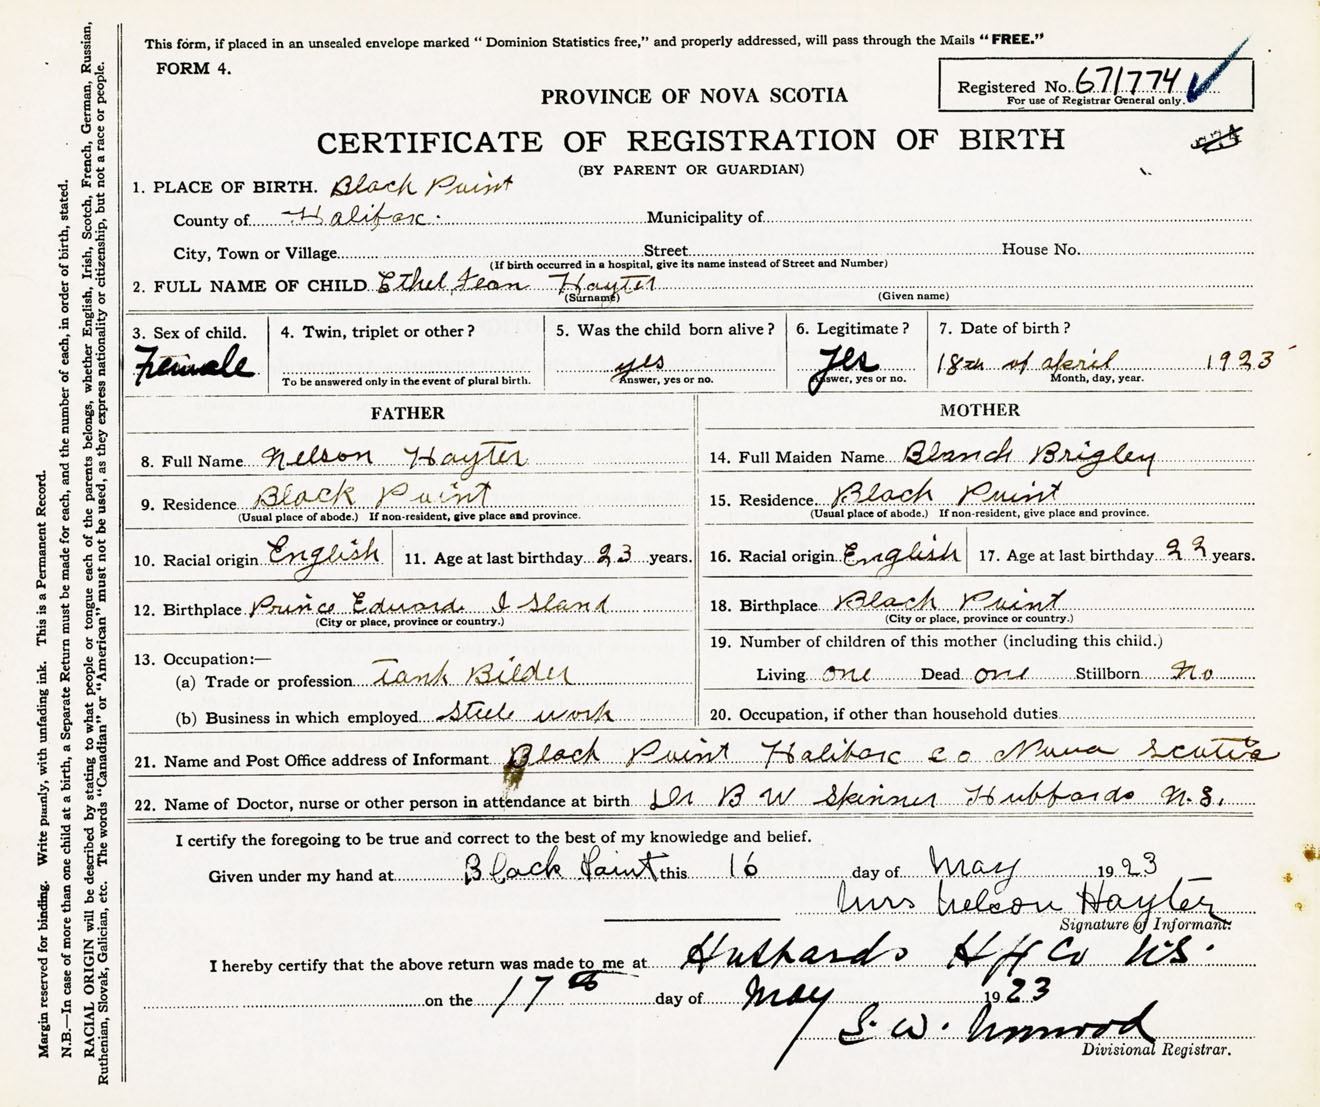 This form, if placed in an unsealed envelope marked "Dominion Statistics free," and properly addressed, will pass through the Mails "FREE."
FORM 4.
Registered No. 671774
For use of Registrar General only.
PROVINCE OF NOVA SCOTIA
CERTIFICATE OF REGISTRATION OF BIRTH
(BY PARENT OR GUARDIAN)
1. PLACE OF BIRTH. Black Point
County of Halifax. Municipality of
City, Town or Village Street House No.
(If birth occurred in a hospital, give its name instead of Street and Number)
2. FULL NAME OF CHILD Ethel Jean Hayter
(Surname) (Given name)
3. Sex of child. 4. Twin, triplet or other? 5. Was the child born alive? 6. Legitimate? 7. Date of birth?
Female yes Yes 18th of april 1923
To be answered only in the event of plural birth. Answer, yes or no. Answer, yes or no. Month, day, year.
FATHER MOTHER
8. Full Name Nelson Hayter
9. Residence Black Point
(Usual place of abode.) If non-resident, give place and province.
10. Racial origin English 11. Age at last birthday 23 years.
12. Birthplace Prince Edward Island
(City or place, province or country.)
13. Occupation:—
(a) Trade or profession Tank Bilder
(b) Business in which employed Steele work
14. Full Maiden Name Blanch Brigley
15. Residence Black Point
(Usual place of abode.) If non-resident, give place and province.
16. Racial origin English 17. Age at last birthday 22 years.
18. Birthplace Black Point
(City or place, province or country.)
19. Number of children of this mother (including this child.)
Living one Dead one Stillborn No
20. Occupation, if other than household duties
21. Name and Post Office address of Informant Black Point Halifax Co Nova Scotia
22. Name of Doctor, nurse or other person in attendance at birth Dr B W Skinner Hubbards N.S.
I certify the foregoing to be true and correct to the best of my knowledge and belief.
Given under my hand at Black Point this 16 day of May 1923
Mrs Nelson Hayter
Signature of Informant.
I hereby certify that the above return was made to me at Hubbards Hfx Co N.S.
on the 17th day of May 1923
Divisional Registrar.
Margin reserved for binding. Write plainly, with unfading ink. This is a Permanent Record.
N.B.—In case of more than one child at a birth, a Separate Return must be made for each, and the number of each, in order of birth, stated.
RACIAL ORIGIN will be described by stating to what people or tongue each of the parents belongs, whether English, Irish, Scotch, French, German, Russian,
Ruthenian, Slovak, Galician, etc. The words "Canadian" or "American" must not be used, as they express nationality or citizenship, but not a race or people.